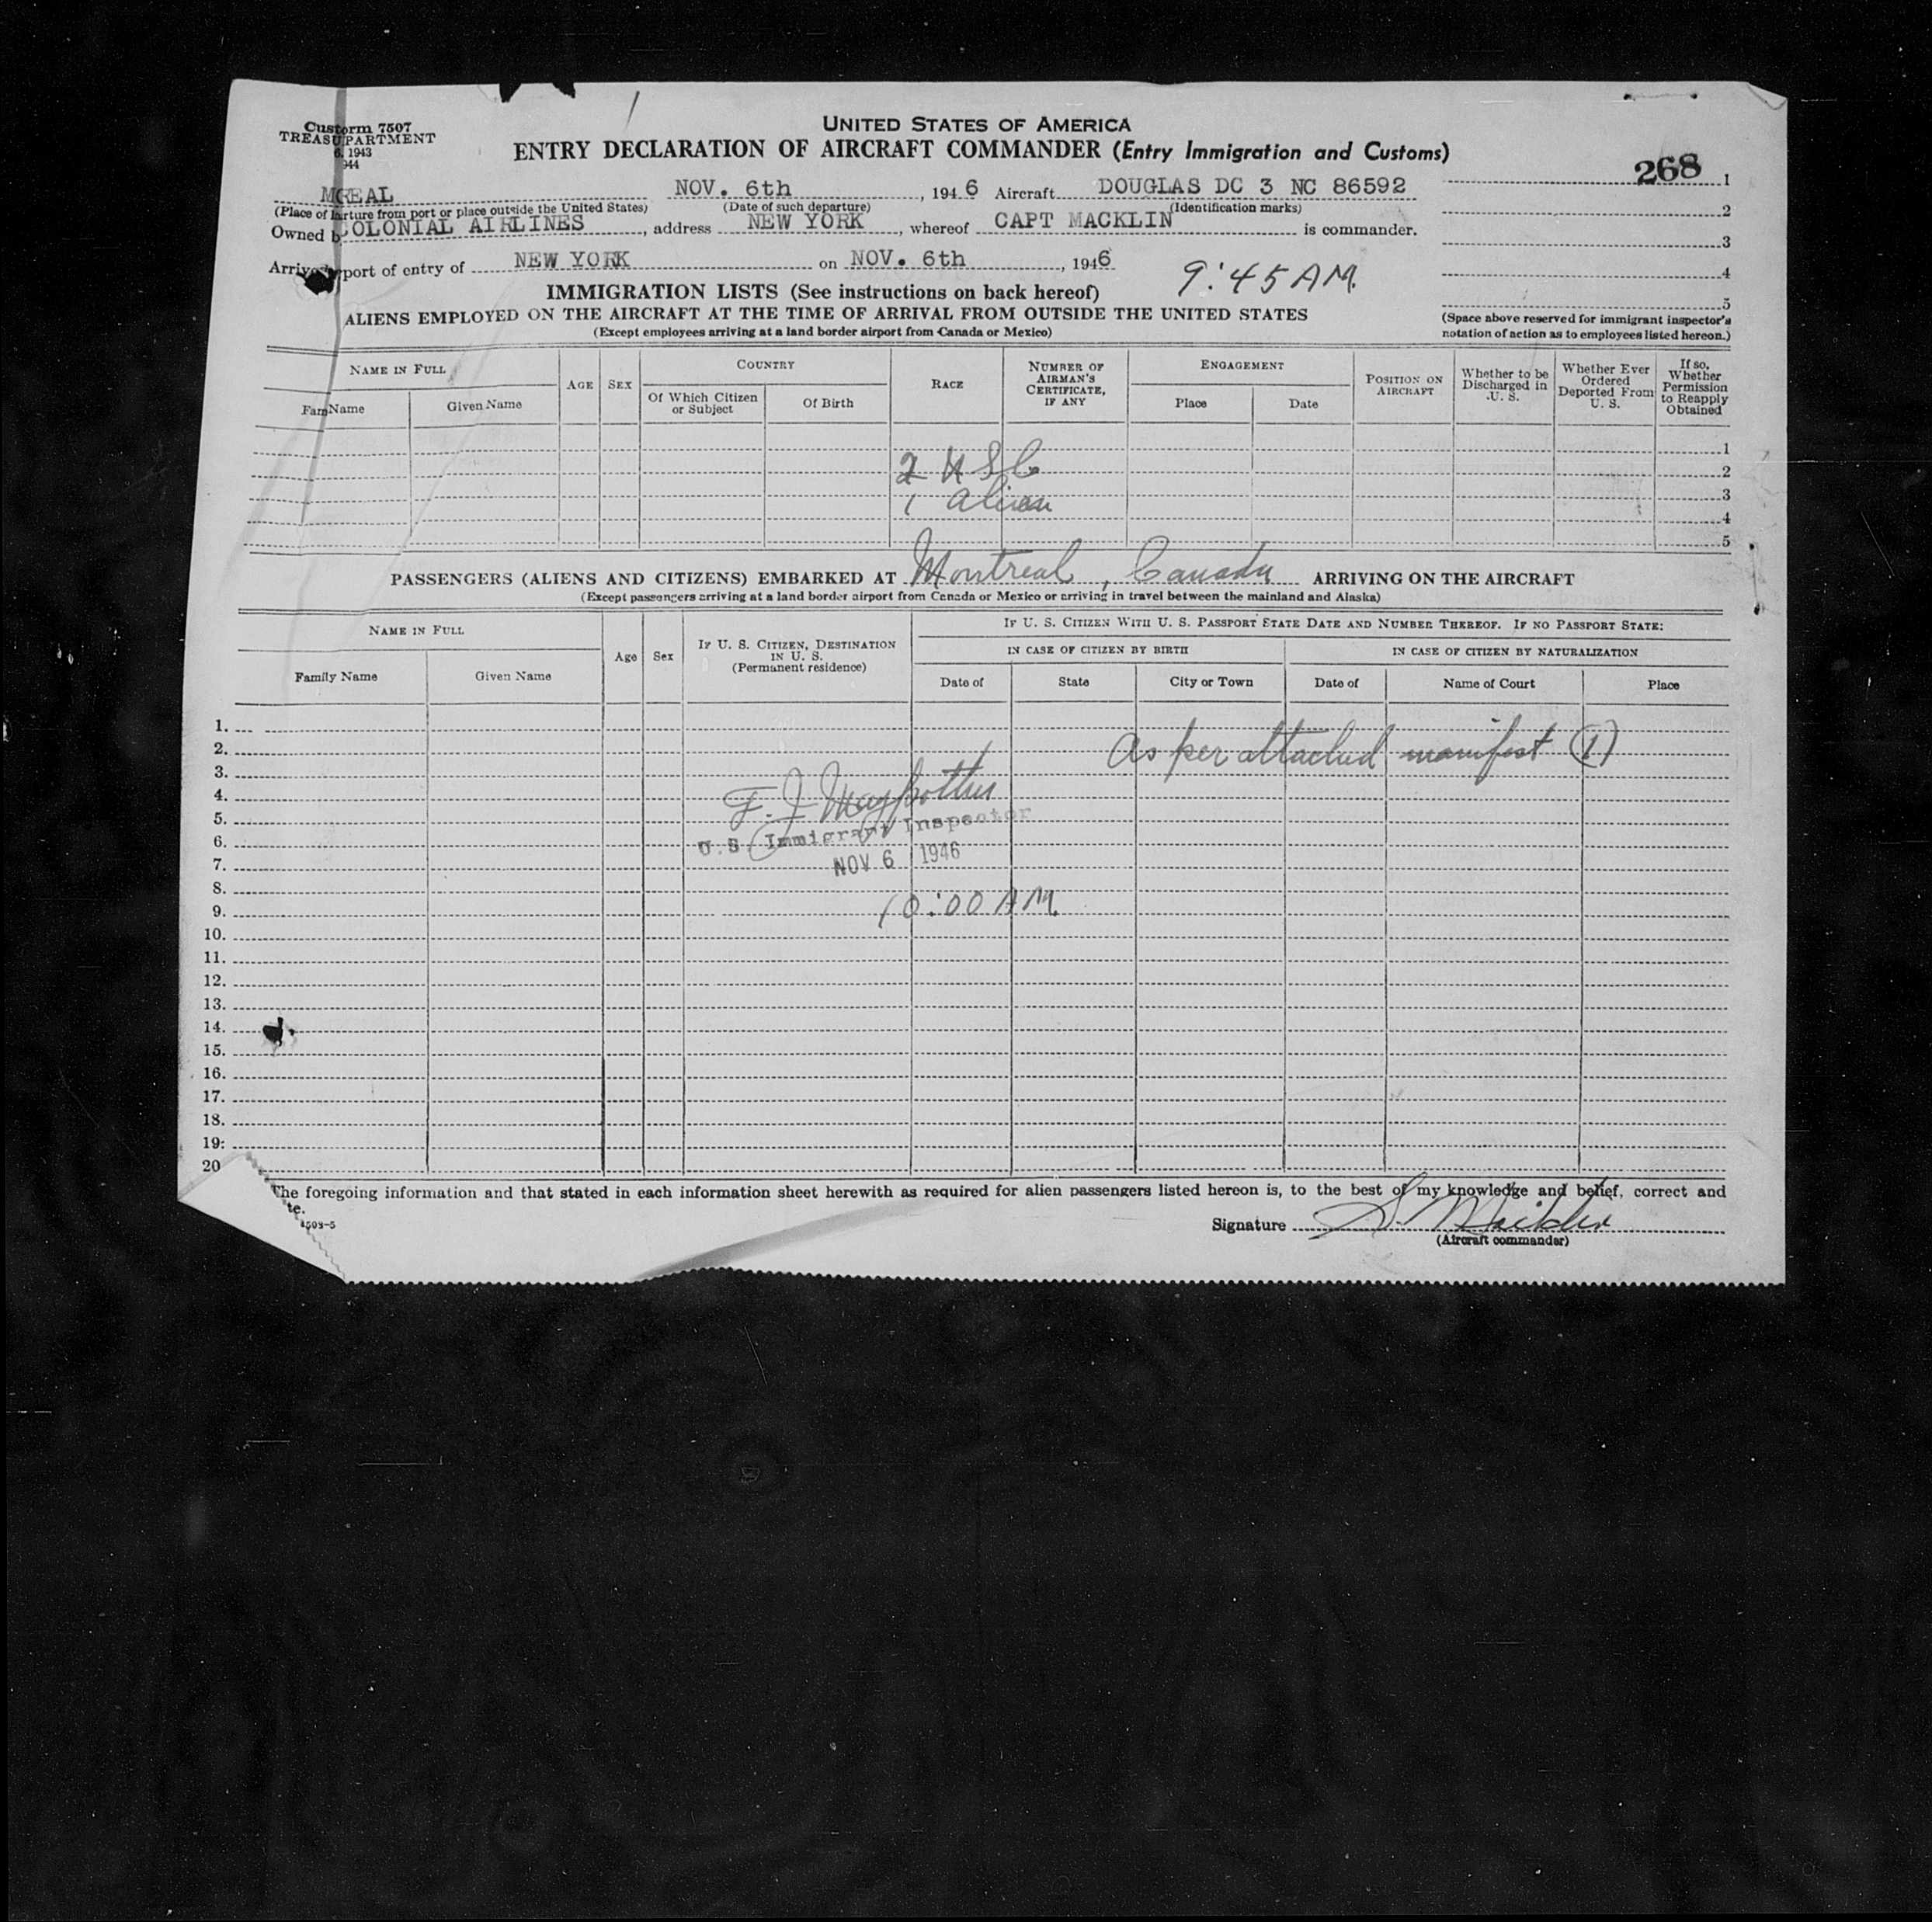 Custorm 7507
TREASUPARTMENT
6, 1943
944
UNITED STATES OF AMERICA
ENTRY DECLARATION OF AIRCRAFT COMMANDER (Entry Immigration and Customs)
268
MREAL NOV. 6th, 1946 Aircraft DOUGLAS DC 3 NC 86592
(Place of arture from port or place outside the United States) (Date of such departure) (Identification marks)
Owned b OLONIAL AIRLINES, address NEW YORK, whereof CAPT MACKLIN is commander.
Arrive port of entry of NEW YORK on NOV. 6th, 1946 9:45 AM.
1
2
3
4
5
(Space above reserved for immigrant inspector's notation of action as to employees listed hereon.)
IMMIGRATION LISTS (See instructions on back hereof)
ALIENS EMPLOYED ON THE AIRCRAFT AT THE TIME OF ARRIVAL FROM OUTSIDE THE UNITED STATES
(Except employees arriving at a land border airport from Canada or Mexico)
NAME IN FULL
Fam Name Given Name
AGE SEX
COUNTRY
Of Which Citizen or Subject Of Birth
RACE
NUMBER OF AIRMAN'S CERTIFICATE, IF ANY
ENGAGEMENT
Place Date
POSITION ON AIRCRAFT
Whether to be Discharged in U. S.
Whether Ever Ordered Deported From U. S.
If so, Whether Permission to Reapply Obtained
1
2 U S C 2
1 alien 3
4
5
PASSENGERS (ALIENS AND CITIZENS) EMBARKED AT Montreal, Canada ARRIVING ON THE AIRCRAFT
(Except passengers arriving at a land border airport from Canada or Mexico or arriving in travel between the mainland and Alaska)
NAME IN FULL
Family Name Given Name
Age Sex
IF U. S. CITIZEN, DESTINATION IN U. S.
(Permanent residence)
IF U. S. CITIZEN WITH U. S. PASSPORT STATE DATE AND NUMBER THEREOF. IF NO PASSPORT STATE:
IN CASE OF CITIZEN BY BIRTH IN CASE OF CITIZEN BY NATURALIZATION
Date of State City or Town Date of Name of Court Place
1.
2. As per attached manifest (1)
3.
4. F. J.
5.
6. U.S. Immigrant Inspector
7. NOV 6 1946
8.
9. 10:00 AM.
10.
11.
12.
13.
14.
15.
16.
17.
18.
19.
20
The foregoing information and that stated in each information sheet herewith as required for alien passengers listed hereon is, to the best of my knowledge and belief, correct and
te.
4503-5
Signature S. Macklin
(Aircraft commander)